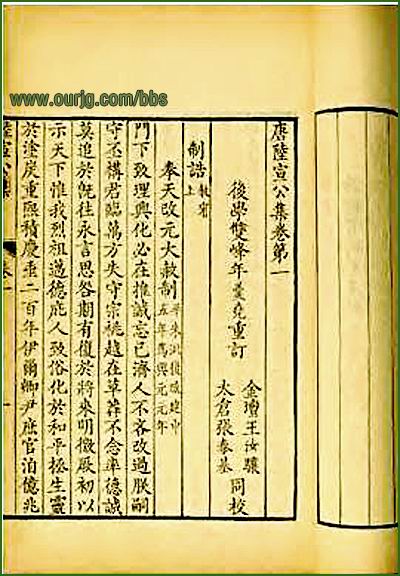 www.ourjg.com/bbs
唐陸宣公集卷第一
後學雙峰年羹堯重訂
金壇王汝驤
太倉張泰基
同校
制誥
赦宥
上
奉天改元大赦制
平朱泚後改建中
五年為興元元年
門下致理興化必在推誠忘己濟人不吝改過朕嗣
守丕構君臨萬方失守宗祧越在草莽不念率德誠
莫追於既往永言思咎期有復於將來明徵厥初以
示天下惟我烈祖邁德庇人致俗化於和平拯生靈
於塗炭重熙積慶垂二百年伊爾卿尹庶官洎億兆
陸宣公集
卷一
一